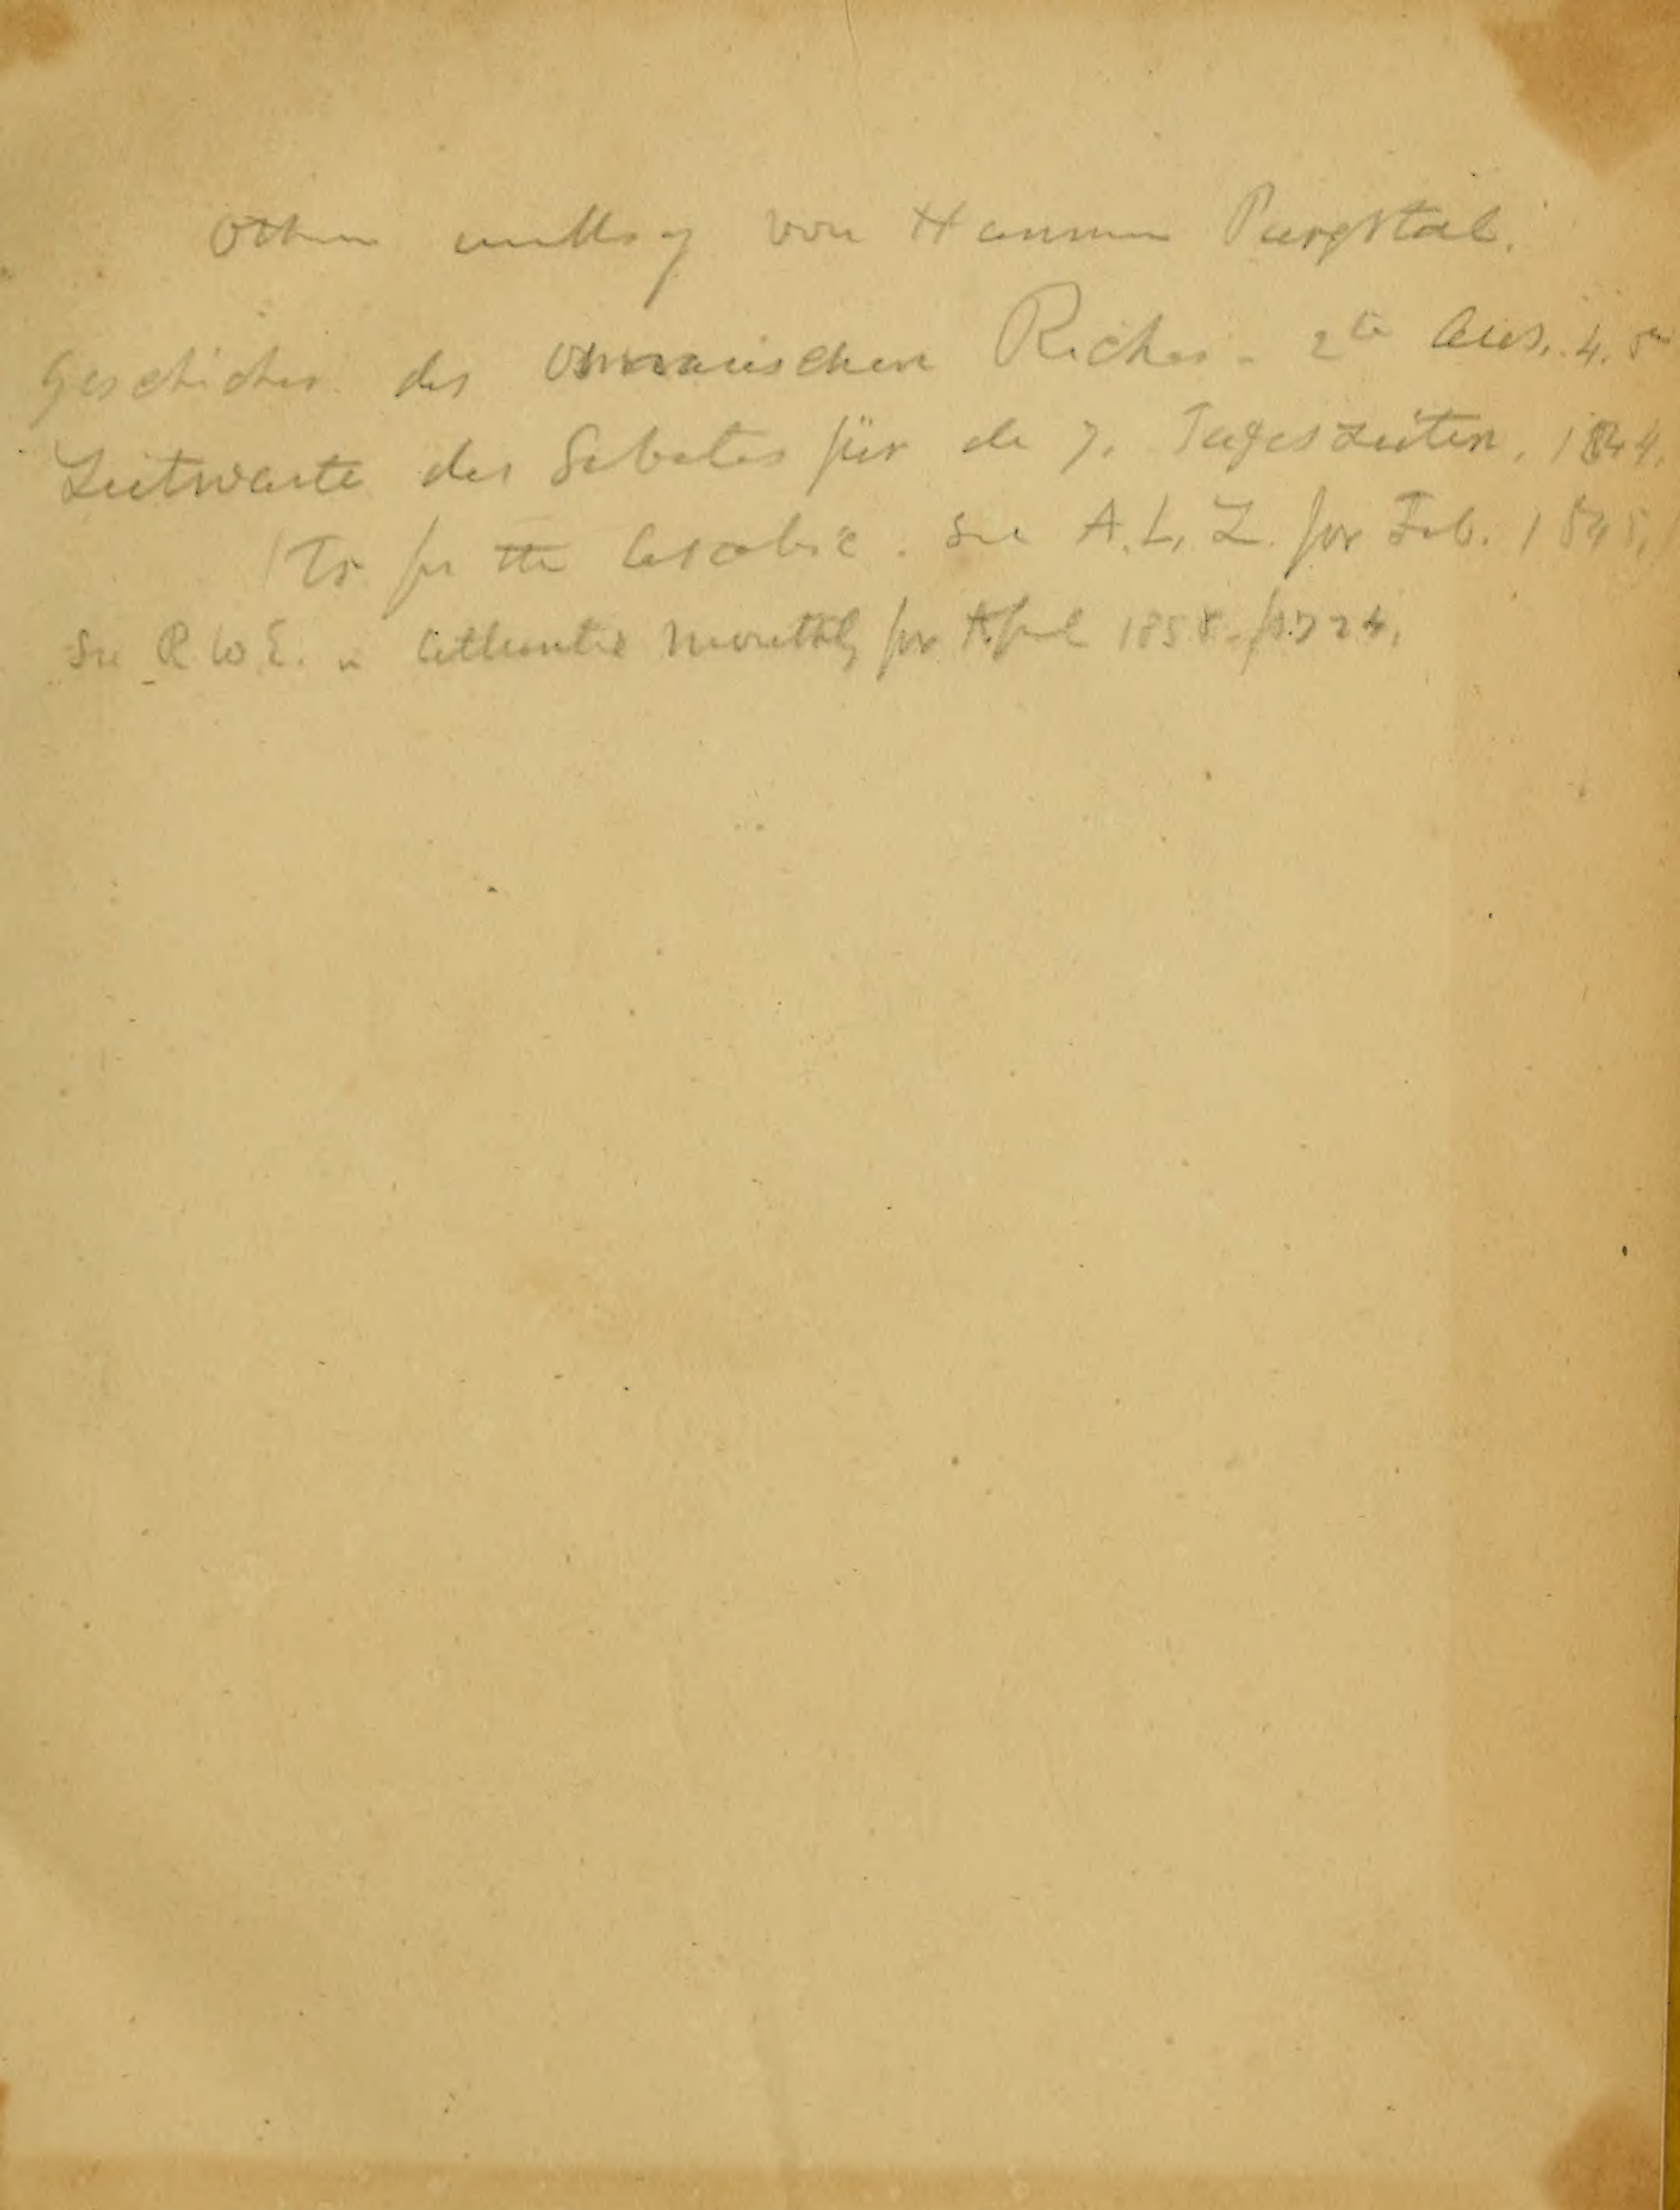 Other works of von Hammer Purgstal.
Geschichte des Osmanischen Reiches - 2te Aus. 4.
Zeitwarte des Gebetes für die 7. Tageszeiten. 1844.
Tr for the Arabic. See A. L. Z. for Feb. 1845.
See R. W. E. in Atlantic Monthly for April 1858. p. 724.